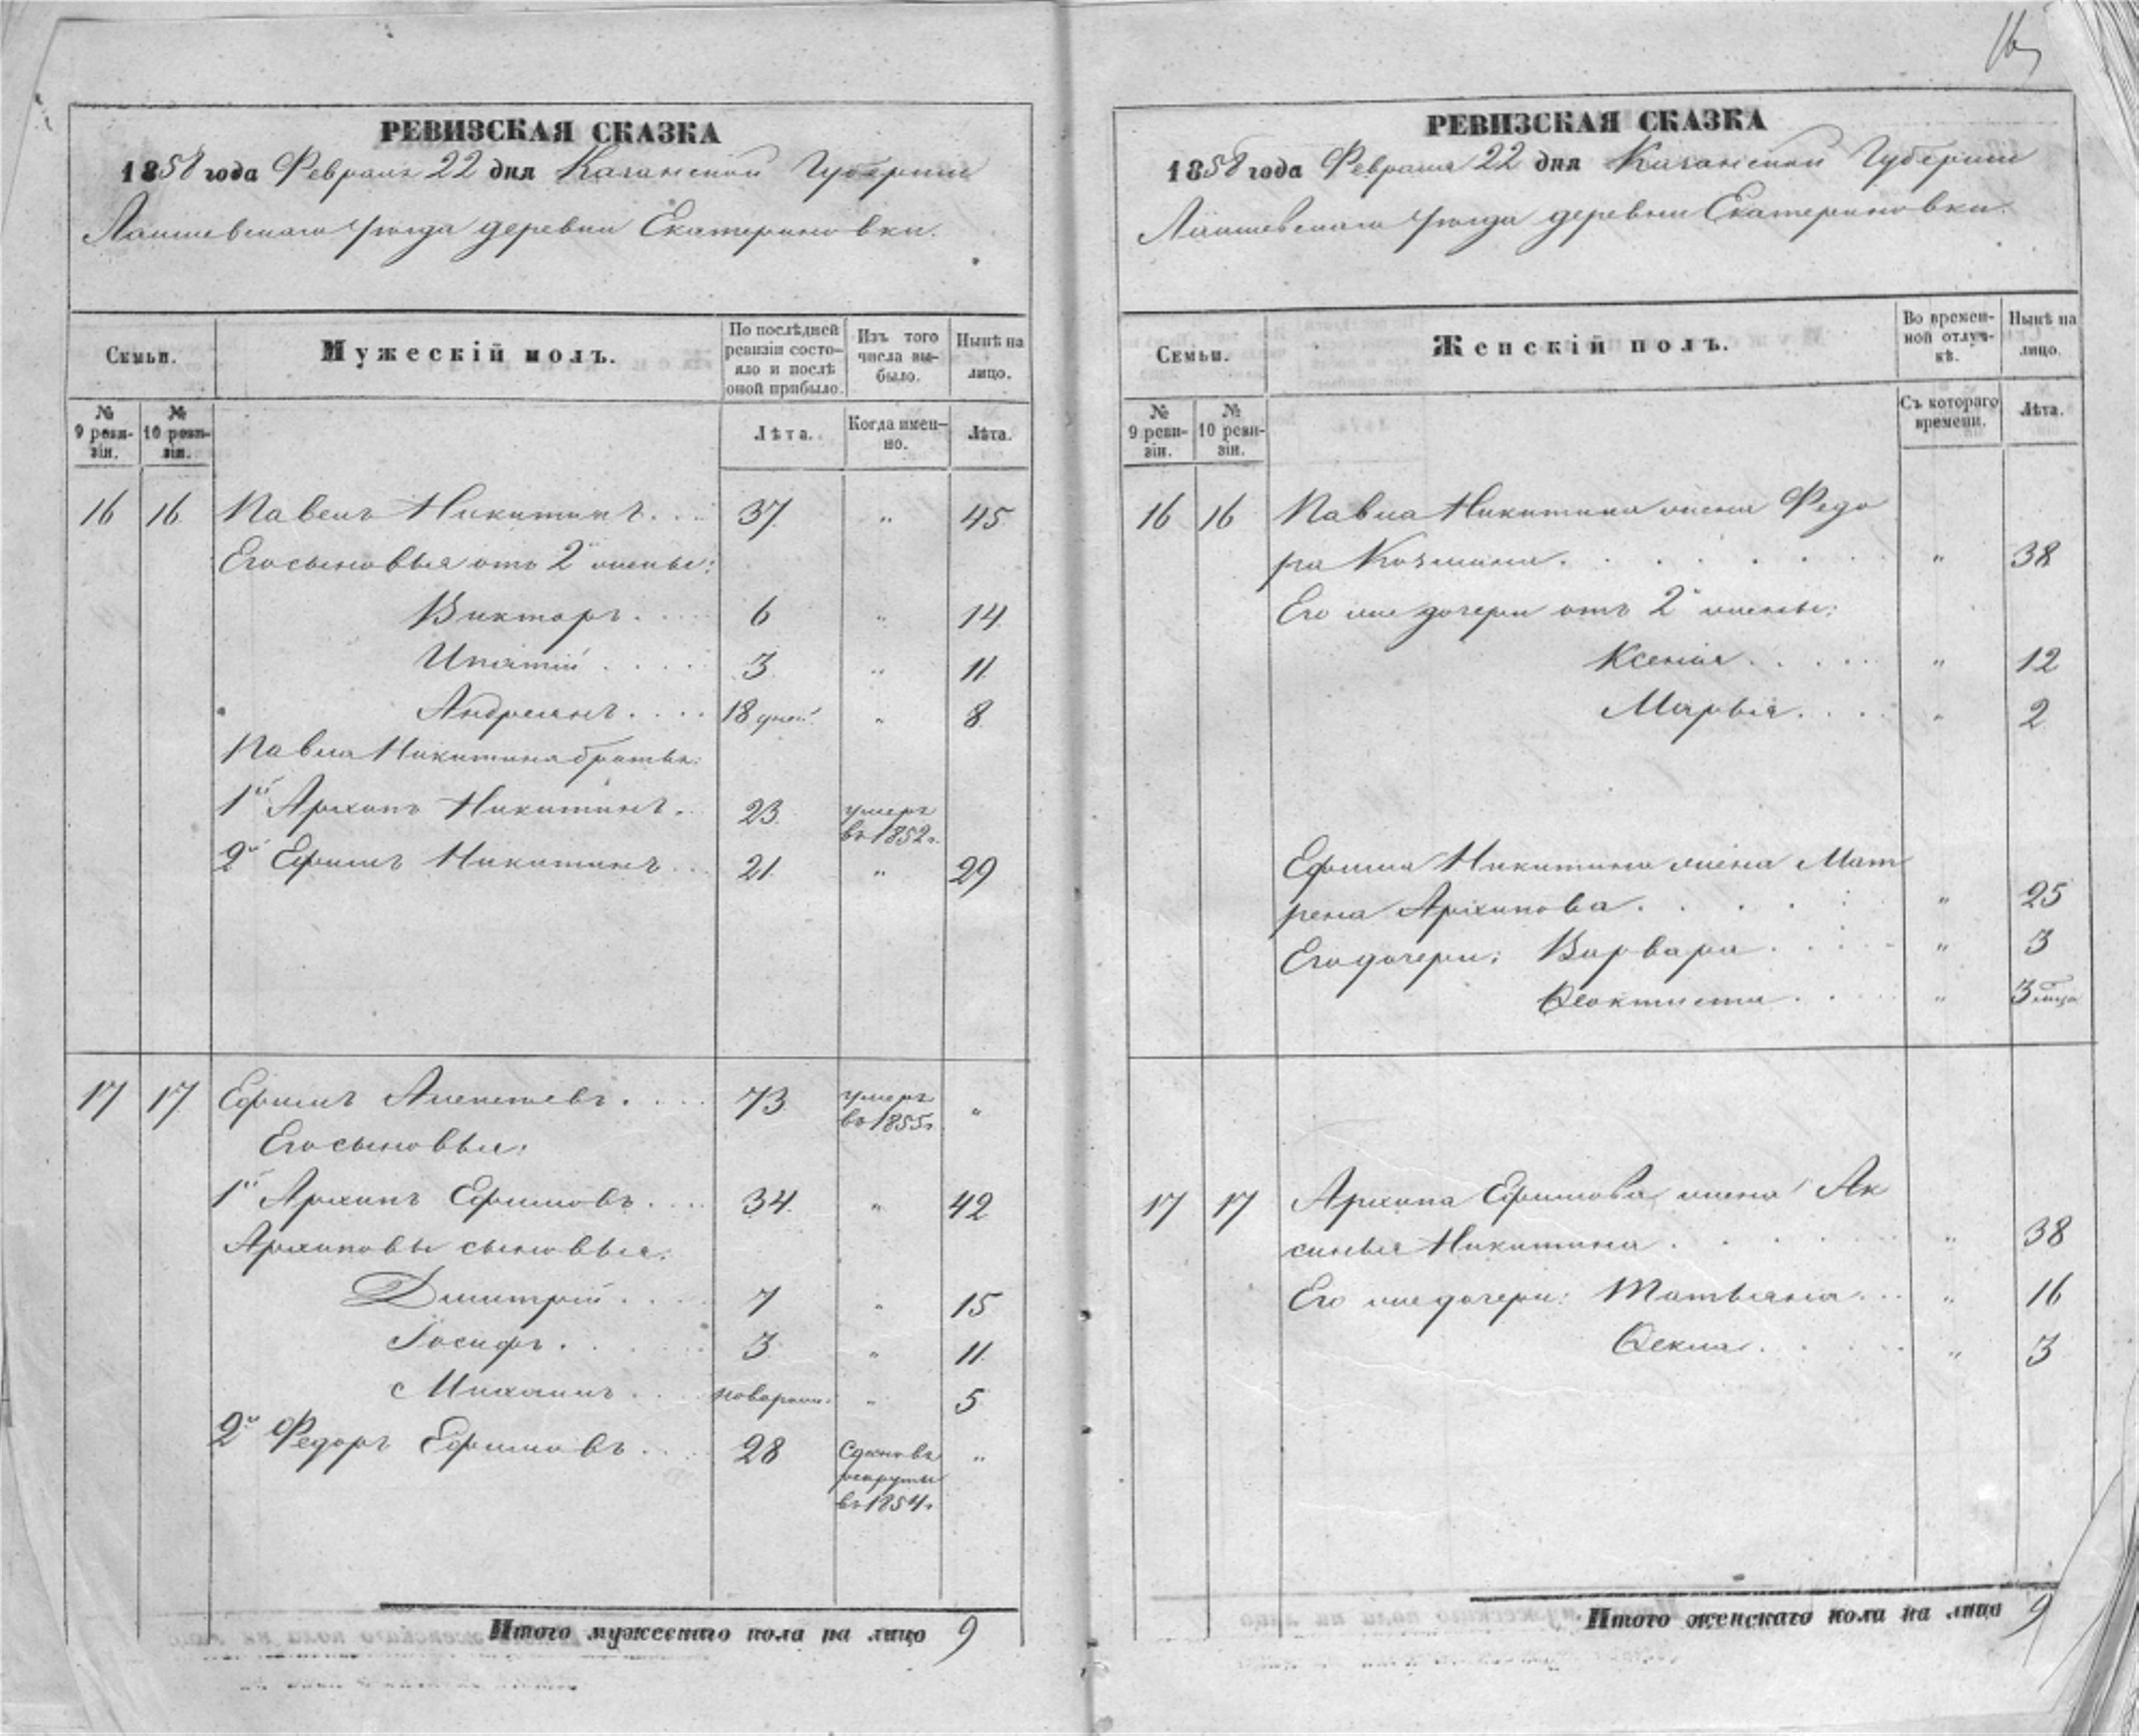 16
РЕВИЗСКАЯ СКАЗКА
1858 года Февраля 22 дня Казанской Губернии
Лаишевскаго Уѣзда деревни Екатериновки.
Семьи.
Мужескій полъ.
По послѣдней
ревизіи состо-
яло и послѣ
оной прибыло.
Изъ того
числа вы-
было.
Нынѣ на
лицо.
№
9 реви-
зіи.
№
10 реви-
зіи.
Лѣта.
Когда имен-
но.
Лѣта.
16 16 Павелъ Никитинъ. 37. " 45
Его сыновья отъ 2й жены:
Викторъ. 6 " 14
Ипатій 3 " 11
Андреянъ. 18 дней " 8
Павла Никитина братья:
1й Архипъ Никитинъ. 23. умеръ
въ 1852г.
2й Ефимъ Никитинъ 21 " 29
17 17 Ефимъ Алексѣевъ. 73. умеръ "
въ 1855г.
Его сыновья:
1й Архипъ Ефимовъ. 34. " 42
Архиповы сыновья:
Дмитрій. 7 " 15
Іосифъ. 3 " 11
Михаилъ новорожд. " 5
2й Федоръ Ефимовъ. 28 Сданъ въ "
рекруты
въ 1854г.
Итого мужескаго пола на лицо 9
РЕВИЗСКАЯ СКАЗКА
1858 года Февраля 22 дня Казанской Губернии
Лаишевскаго Уѣзда деревни Екатериновки.
Семьи.
Женскій полъ.
Во времен-
ной отлуч-
кѣ.
Нынѣ на
лицо.
№
9 реви-
зіи.
№
10 реви-
зіи.
Съ котораго
времени.
Лѣта.
16 16 Павла Никитина жена Федо
ра Козмина. " 38
Его же дочери отъ 2й жены:
Ксенія. " 12
Марья. " 2
Ефима Никитина жена Мат
рена Архипова. " 25
Его дочери: Варвара. " 3
Ѳеоктиста. " 3 мѣсяца
17 17 Архипа Ефимова жена Ак
синья Никитина. " 38
Его же дочери: Татьяна. " 16
Ѳекла. " 3
Итого женскаго пола на лицо 9